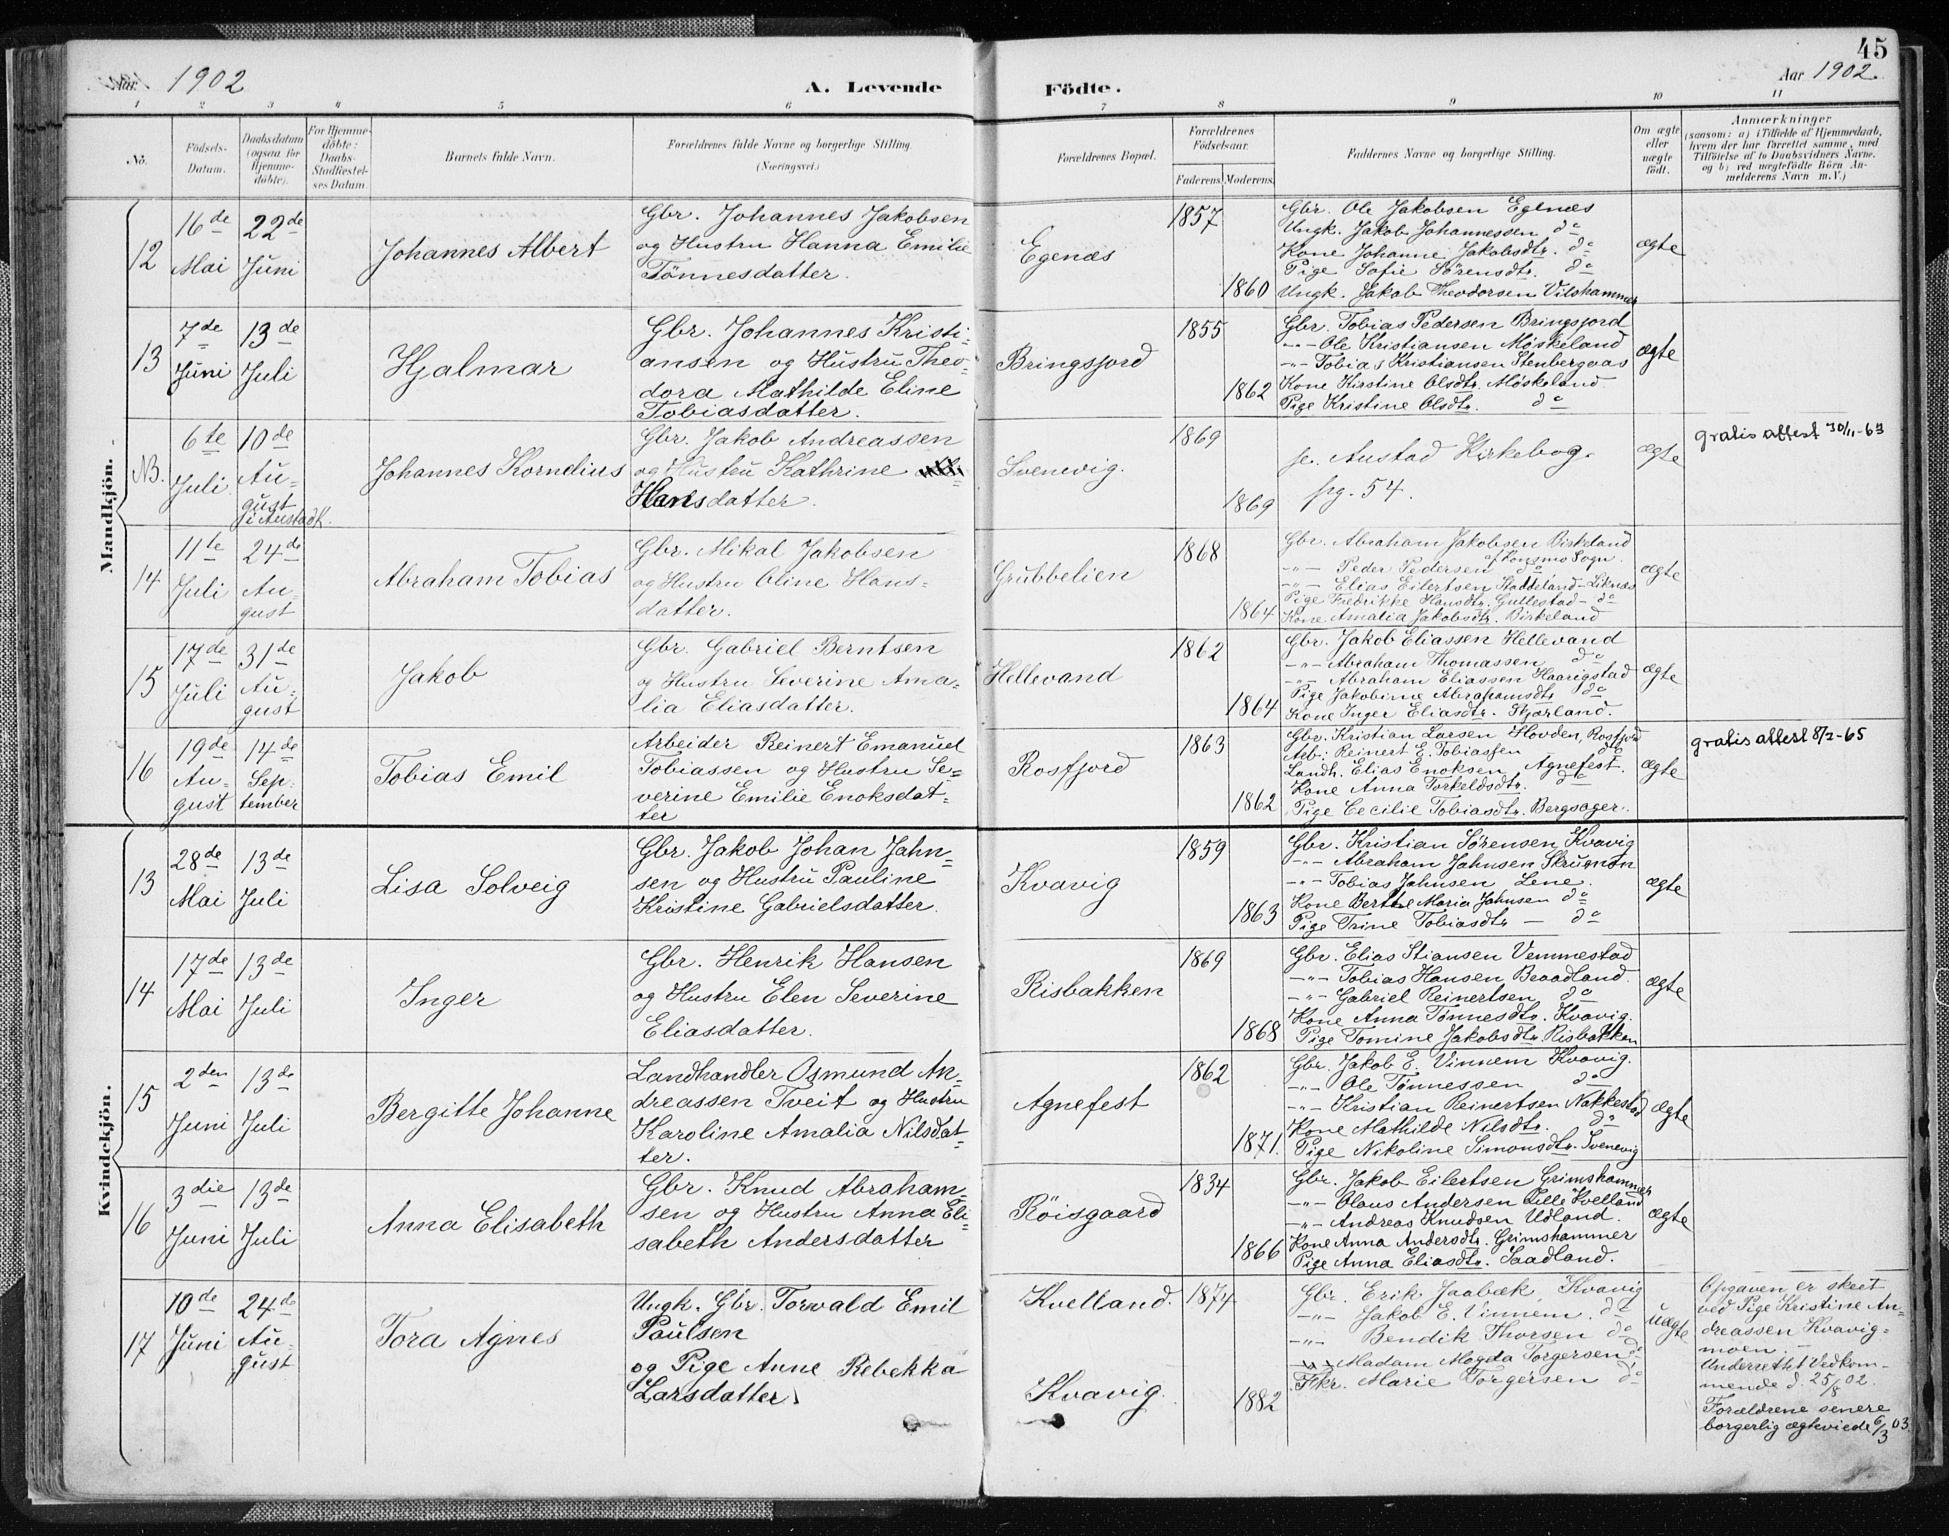 45
Aar. 1902
A. Levende
Födte.
Aar 1902.
1 2 3 4 5 6 7 8 9 10 11
No.
Födsels-
Datum.
Daabsdatum
(ogsaa for
Hjemme-
döbte).
For Hjemme-
döbte:
Daabs-
Stadfæstel-
ses Datum.
Barnets fulde Navn.
Forældrenes fulde Navne og borgerlige Stilling.
(Næringsvei.)
Forældrenes Bopæl.
Forældrenes
Födselsaar.
Faderens. Moderens.
Faddernes Navne og borgerlige Stilling.
Om ægte
eller
uægte
födt.
Anmærkninger
(saasom: a) i Tilfælde af Hjemmedaab,
hvem der har forrettet samme, med
Tilföielse af to Daabsvidners Navne,
og b) ved uægtefödte Börn An-
melderens Navn m. V.)
Mandkjön.
12
16de
Mai
22de
Juni
Johannes Albert
Gbr. Johannes Jakobsen
og Hustru Hanna Emilie
Tönnesdatter.
Egenæs
1857
1860
Gbr. Ole Jakobsen Egenæs
Ungk. Jakob Johannessen do
Kone Johanne Jakobsdtr. do
Pige Sofie Sörensdtr. do
Ungk. Jakob Theodorsen Vilshammer
ægte
13
7de
Juni
13de
Juli
Hjalmar
Gbr. Johannes Kristi-
ansen og Hustru Theo-
dora Mathilde Eline
Tobiasdatter.
Bringsjord
1855
1862
Gbr. Tobias Pedersen Bringsjord
-"- Ole Kristiansen Möskeland
-"- Tobias Kristiansen Stenbergaas
Kone Kirstine Olsdtr. Möskeland
Pige Kristine Olsdtr. do
ægte
NB.
6te
Juli
10de
Au-
gust
i Austad K.
Johannes Kornelius
Gbr. Jakob Andreassen
og Hustru Kathrine
Hansdatter.
Svenevig.
1869
1869
se Austad Kirkebog.
pg. 54.
ægte
gratis attest 30/11-63
14
11te
Juli
24de
Au-
gust
Abraham Tobias
Gbr. Mikal Jakobsen
og Hustru Oline Hans-
datter.
Grubbelien
1868
1864
Gbr. Abraham Jakobsen Birkeland
af Konsmo Sogn.
-"- Peder Pedersen do
-"- Elias Eilertsen Staddeland-Liknæs
Pige Fredrikke Hansdtr. Gullestad - do
Kone Amalia Jakobsdtr. Birkeland
ægte
15
17de
Juli
31de
Au-
gust
Jakob
Gbr. Gabriel Berntsen
og Hustru Severine Ama-
lia Eliasdatter.
Hellevand
1862
1864
Gbr. Jakob Eliassen Hellevand
-"- Abraham Thomassen do
-"- Abraham Eliassen Haarigstad
Pige Jakobine Abrahamsdtr do
Kone Inger Eliasdtr. Skjørland.
ægte
16
19de
Au-
gust
14de
Sep-
tember
Tobias Emil
Arbeider Reinert Emanuel
Tobiassen og Hustru Se-
verine Emilie Enoksdat-
ter
Rosfjord
1863
1862
Gbr. Kristian Larsen Hovden, Rosfjord
Arb: Reinert E. Tobiassen do
Landh. Elias Enoksen Agnefest.
Kone Anna Torkeldsdtr. do
Pige Cecilie Tobiasdtr. Bergsager.
ægte
gratis attest 8/2-65
Kvindekjön.
13
28de
Mai
13de
Juli
Lisa Solveig
Gbr. Jakob Johan Jahn-
sen og Hustru Pauline
Kristine Gabrielsdatter.
Kvavig
1859
1863
Gbr. Kristian Sörensen Kvavig
-"- Abraham Jahnsen Skrumon
-"- Tobias Jahnsen Lene.
Kone Berthe Maria Jahnsen do
Pige Trine Tobiasdtr - do
ægte
14
17de
Mai
13de
Juli
Inger
Gbr. Henrik Hansen
og Hustru Elen Severine
Eliasdatter.
Risbakken
1869
1868
Gbr. Elias Stiansen Vemmestad
-"- Tobias Hansen Braadland.
-"- Gabriel Reinertsen do
Kone Anna Tönnesdtr. Kvavig.
Pige Tomine Jakobsdtr. Risbakken
ægte
15
2den
Juni
13de
Juli
Bergitte Johanne
Landhandler Osmund An-
dreassen Tveit og Hustru
Karoline Amalia Nilsdat-
ter.
Agnefest
1862
1871.
Gbr. Jakob E. Vinnem Kvavig.
-"- Ole Tönnessen do
-"- Kristian Reinertsen Nakkestad
Kone Mathilde Nilsdtr. do
Pige Nikoline Simonsdtr. Svenevig
ægte
16
3die
Juni
13de
Juli
Anna Elisabeth
Gbr. Knud Abraham-
sen og Hustru Anna Eli-
sabeth Andersdatter
Röisgaard
1834
1866
Gbr. Jakob Eilertsen Grimshammer
-"- Olaus Andersen Lille Kvelland
-"- Andreas Knudsen Udland.
Kone Anna Andersdtr. Grimshammer
Pige Anna Eliasdtr. Saadland.
ægte
17
10de
Juni
24de
Au-
gust
Tora Agnes
Ungk. Gbr. Torvald Emil
Paulsen
og Pige Anne Rebekka
Larsdatter.
Kvelland.
Kvavig.
1874
1882
Gbr. Erik Jaabæk, Kvavig
-"- Jakob E. Vinnem. do
-"- Bendik Thorsen do
Madam Magda Torgersen do
Fkr. Marie Torgersen do
uægte
Opgaven er skeet
ved Pige Kristine An-
dreassen Kvavig-
moen. -
Underrettet Vedkom-
mende d. 25/8 02.
Forældrene senere
borgerlig ægteviede 6/3 03